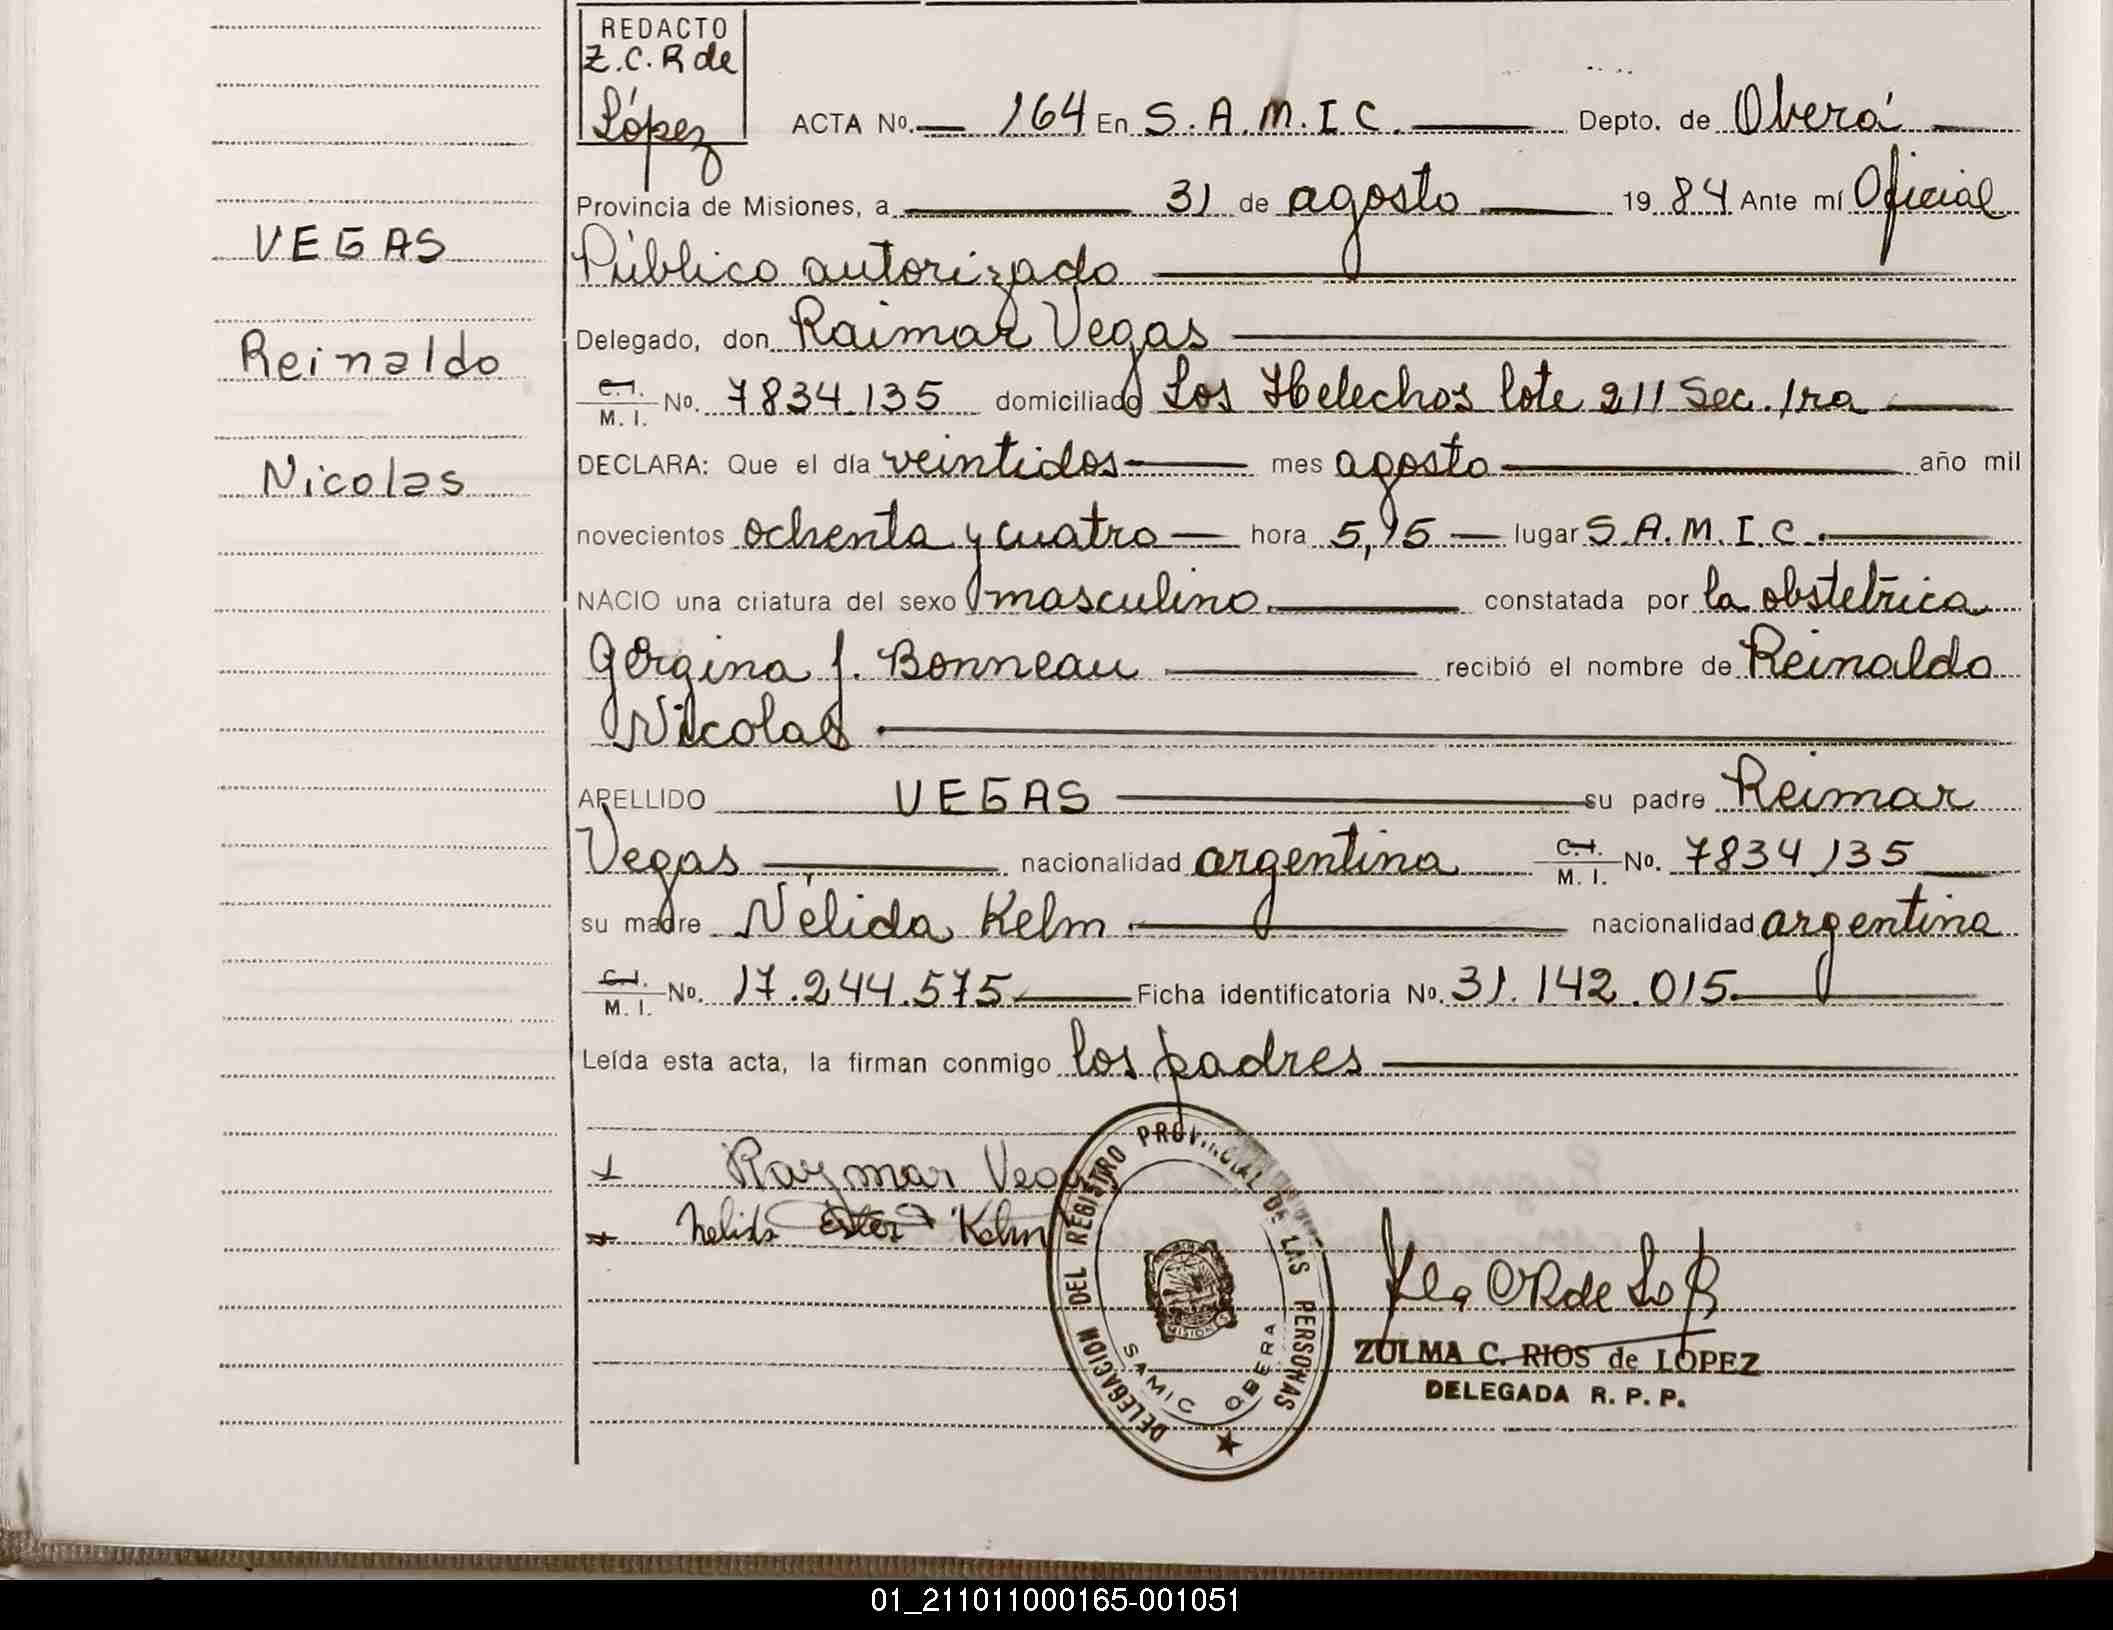 REDACTO
Z. C. R de
López
ACTA No. 164 En S. A. M. I C. Depto. de Oberá
Provincia de Misiones, a 31 de agosto 1984 Ante mí Oficial
Público autorizado
VEGAS
Delegado, don Raimar Vegas
Reinaldo
C. I. M. I. No. 7834.135 domiciliado Los Helechos lote 211 Sec. 1ra
DECLARA: Que el día veintidos mes agosto año mil
Nicolas
novecientos ochenta y cuatro hora 5,15 lugar S. A. M. I. C.
NACIO una criatura del sexo masculino. constatada por la obstetrica
Gergina J. Bonneau recibió el nombre de Reinaldo
Nicolas
APELLIDO VEGAS su padre Reimar
Vegas nacionalidad argentina C. I. M. I. No. 7834135
su madre Nélida Kelm nacionalidad argentina
C. I. M. I. No. 17.244.575 Ficha identificatoria No. 31.142.015
Leída esta acta, la firman conmigo los padres
Raymar Vega
Nelida Ester Kelm
DELEGACION DEL REGISTRO PROVINCIAL DE LAS PERSONAS
SAMIC OBERA
MISIONES
ZULMA C. RIOS de LOPEZ
DELEGADA R. P. P.
01_211011000165-001051